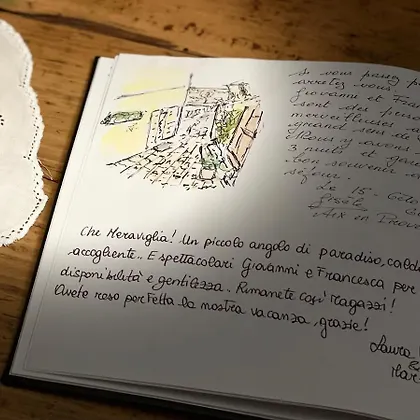 Si vous passez p
arretez vous
Giovanni et Fra
sont des person
merveilleuses
grand sens de
Nous y avons
3 nuits et gar
bon souvenir
séjour.
Le 15 - Octo
Gisèle
Aix en Prove
Che Meraviglia! Un piccolo angolo di paradiso, caldo
accogliente.. E spettacolari Giovanni e Francesca per
disponibilità e gentilezza. Rimanete così ragazzi!
Avete reso perfetta la nostra vacanza, grazie!
Laura
Mar